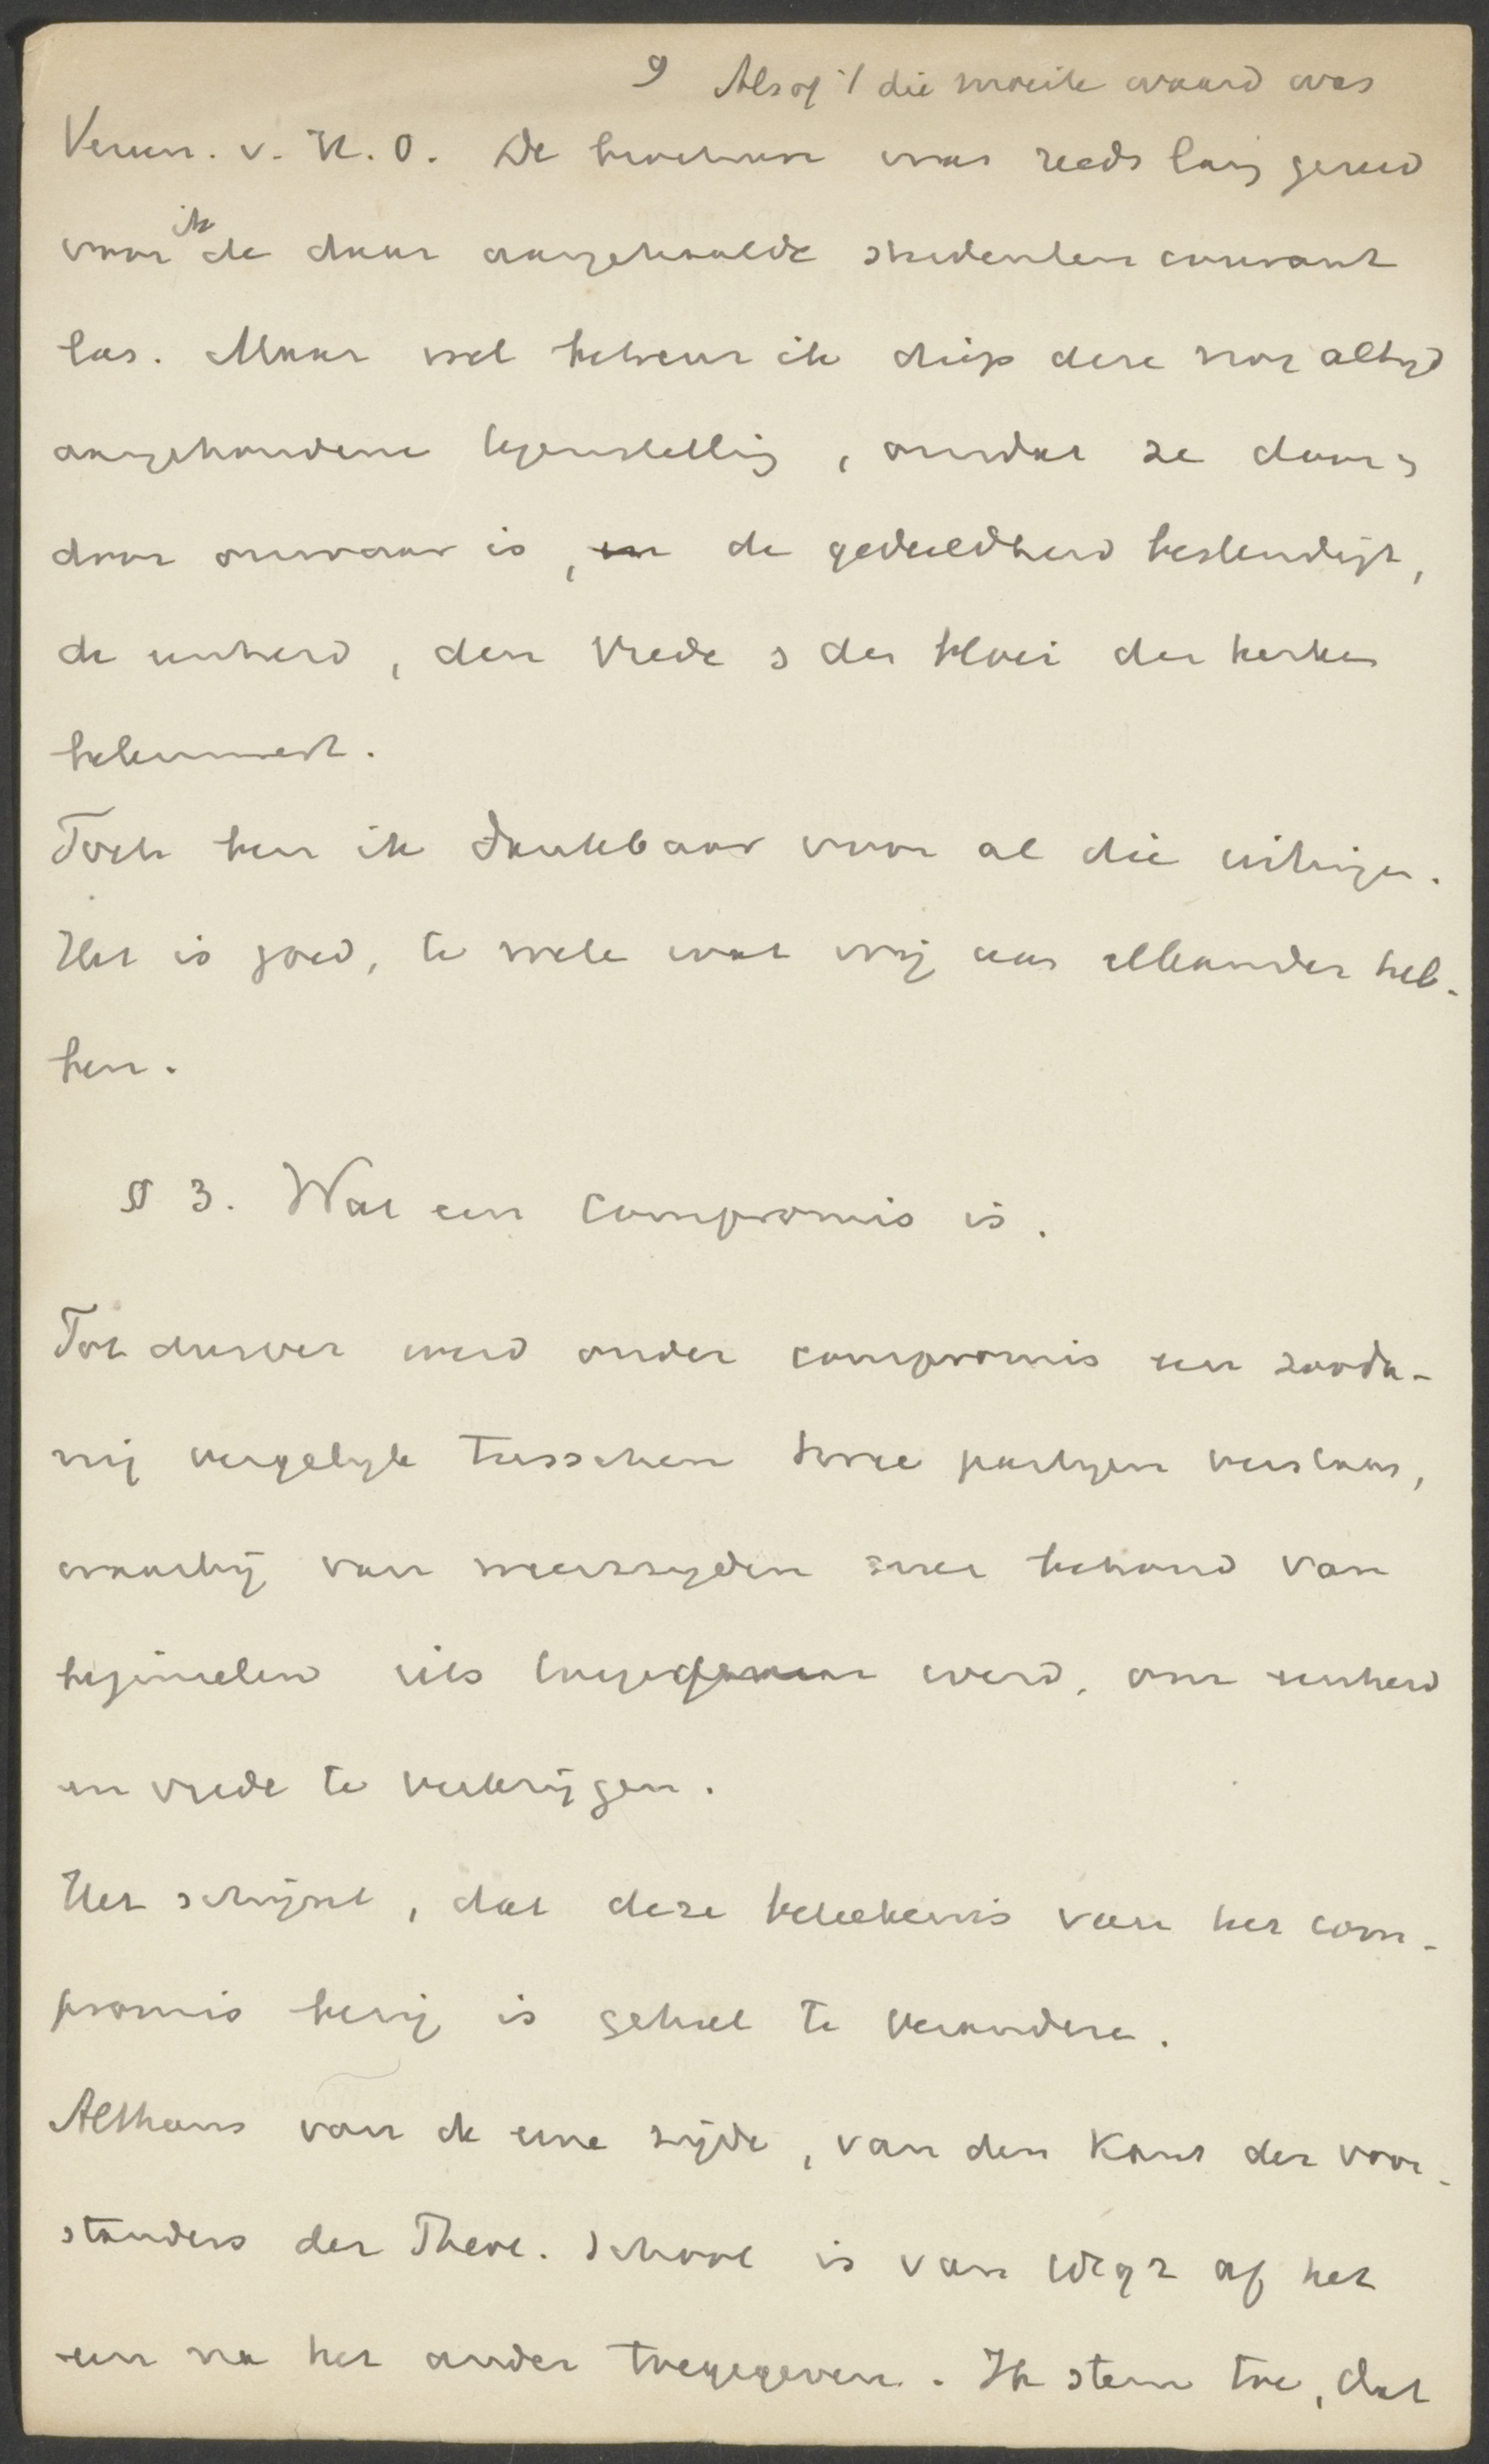 9 Alsof 't die moeite waard was
Vereen. v. H. O. De brochure was reeds lang gereed
voor ik de daar aangehaalde studentencourant
las. Maar wel betreur ik diep deze nog altijd
aangehoudene tegenstelling, omdat ze door &
door onwaar is, de gedeeldheid bestendigt,
de eenheid, den vrede & den bloei der kerken
belemmert.
Toch ben ik dankbaar voor al die uitingen.
Het is goed, te weten wat wij aan elkander heb-
ben.
§ 3. Wat een compromis is.
Tot dusver werd onder compromis een zooda-
nig vergelijk tusschen twee partijen verstaan,
waarbij van weerszijden met behoud van
beginselen iets toegegeven werd, om eenheid
en vrede te verkrijgen.
Het schijnt, dat deze beteekenis van het com-
promis bezig is geheel te veranderen.
Althans van de eene zijde, van den kant der voor-
standers der Theol. School is van 1892 af het
een na het ander toegegeven. Ik stem toe, dat